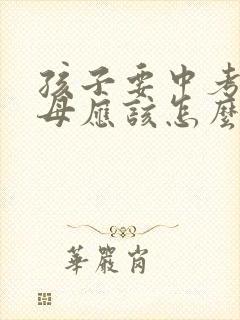 孩子要中考
母應該怎麼
華嚴崗